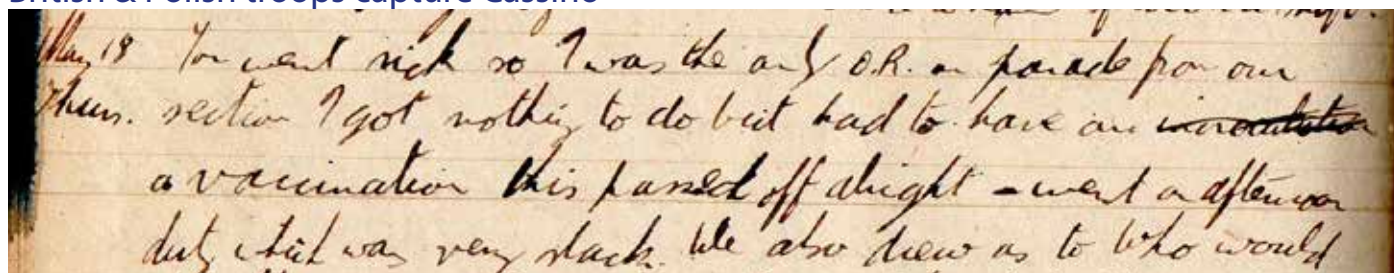 British & Polish troops capture Cassino
May 18 Ton went sick so I was the only O.R. on parade from our
Thurs. section I got nothing to do but had to have an inoculation
a vaccination this passed off alright – went on afternoon
duty which was very slack. We also drew as to who would